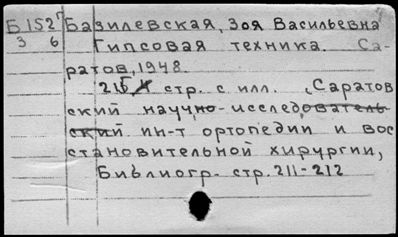 Б1527 Базилевская, Зоя Васильевна
3 6 Гипсовая техника. Са-
ратов, 1948.
215 стр. с илл. (Саратов
ский научно-исследователь
ский ин-т ортопедии и вос
становительной хирургии,
Библиогр. стр. 211-212